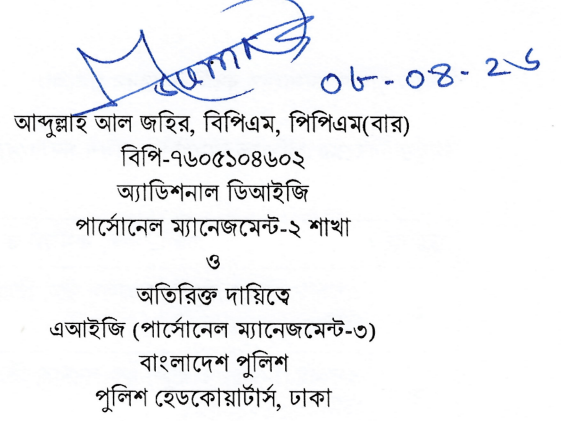 ০৮-০৪-২৬
আব্দুল্লাহ আল জহির, বিপিএম, পিপিএম(বার)
বিপি-৭৬০৫১০৪৬০২
অ্যাডিশনাল ডিআইজি
পার্সোনেল ম্যানেজমেন্ট-২ শাখা
ও
অতিরিক্ত দায়িত্বে
এআইজি (পার্সোনেল ম্যানেজমেন্ট-৩)
বাংলাদেশ পুলিশ
পুলিশ হেডকোয়ার্টার্স, ঢাকা